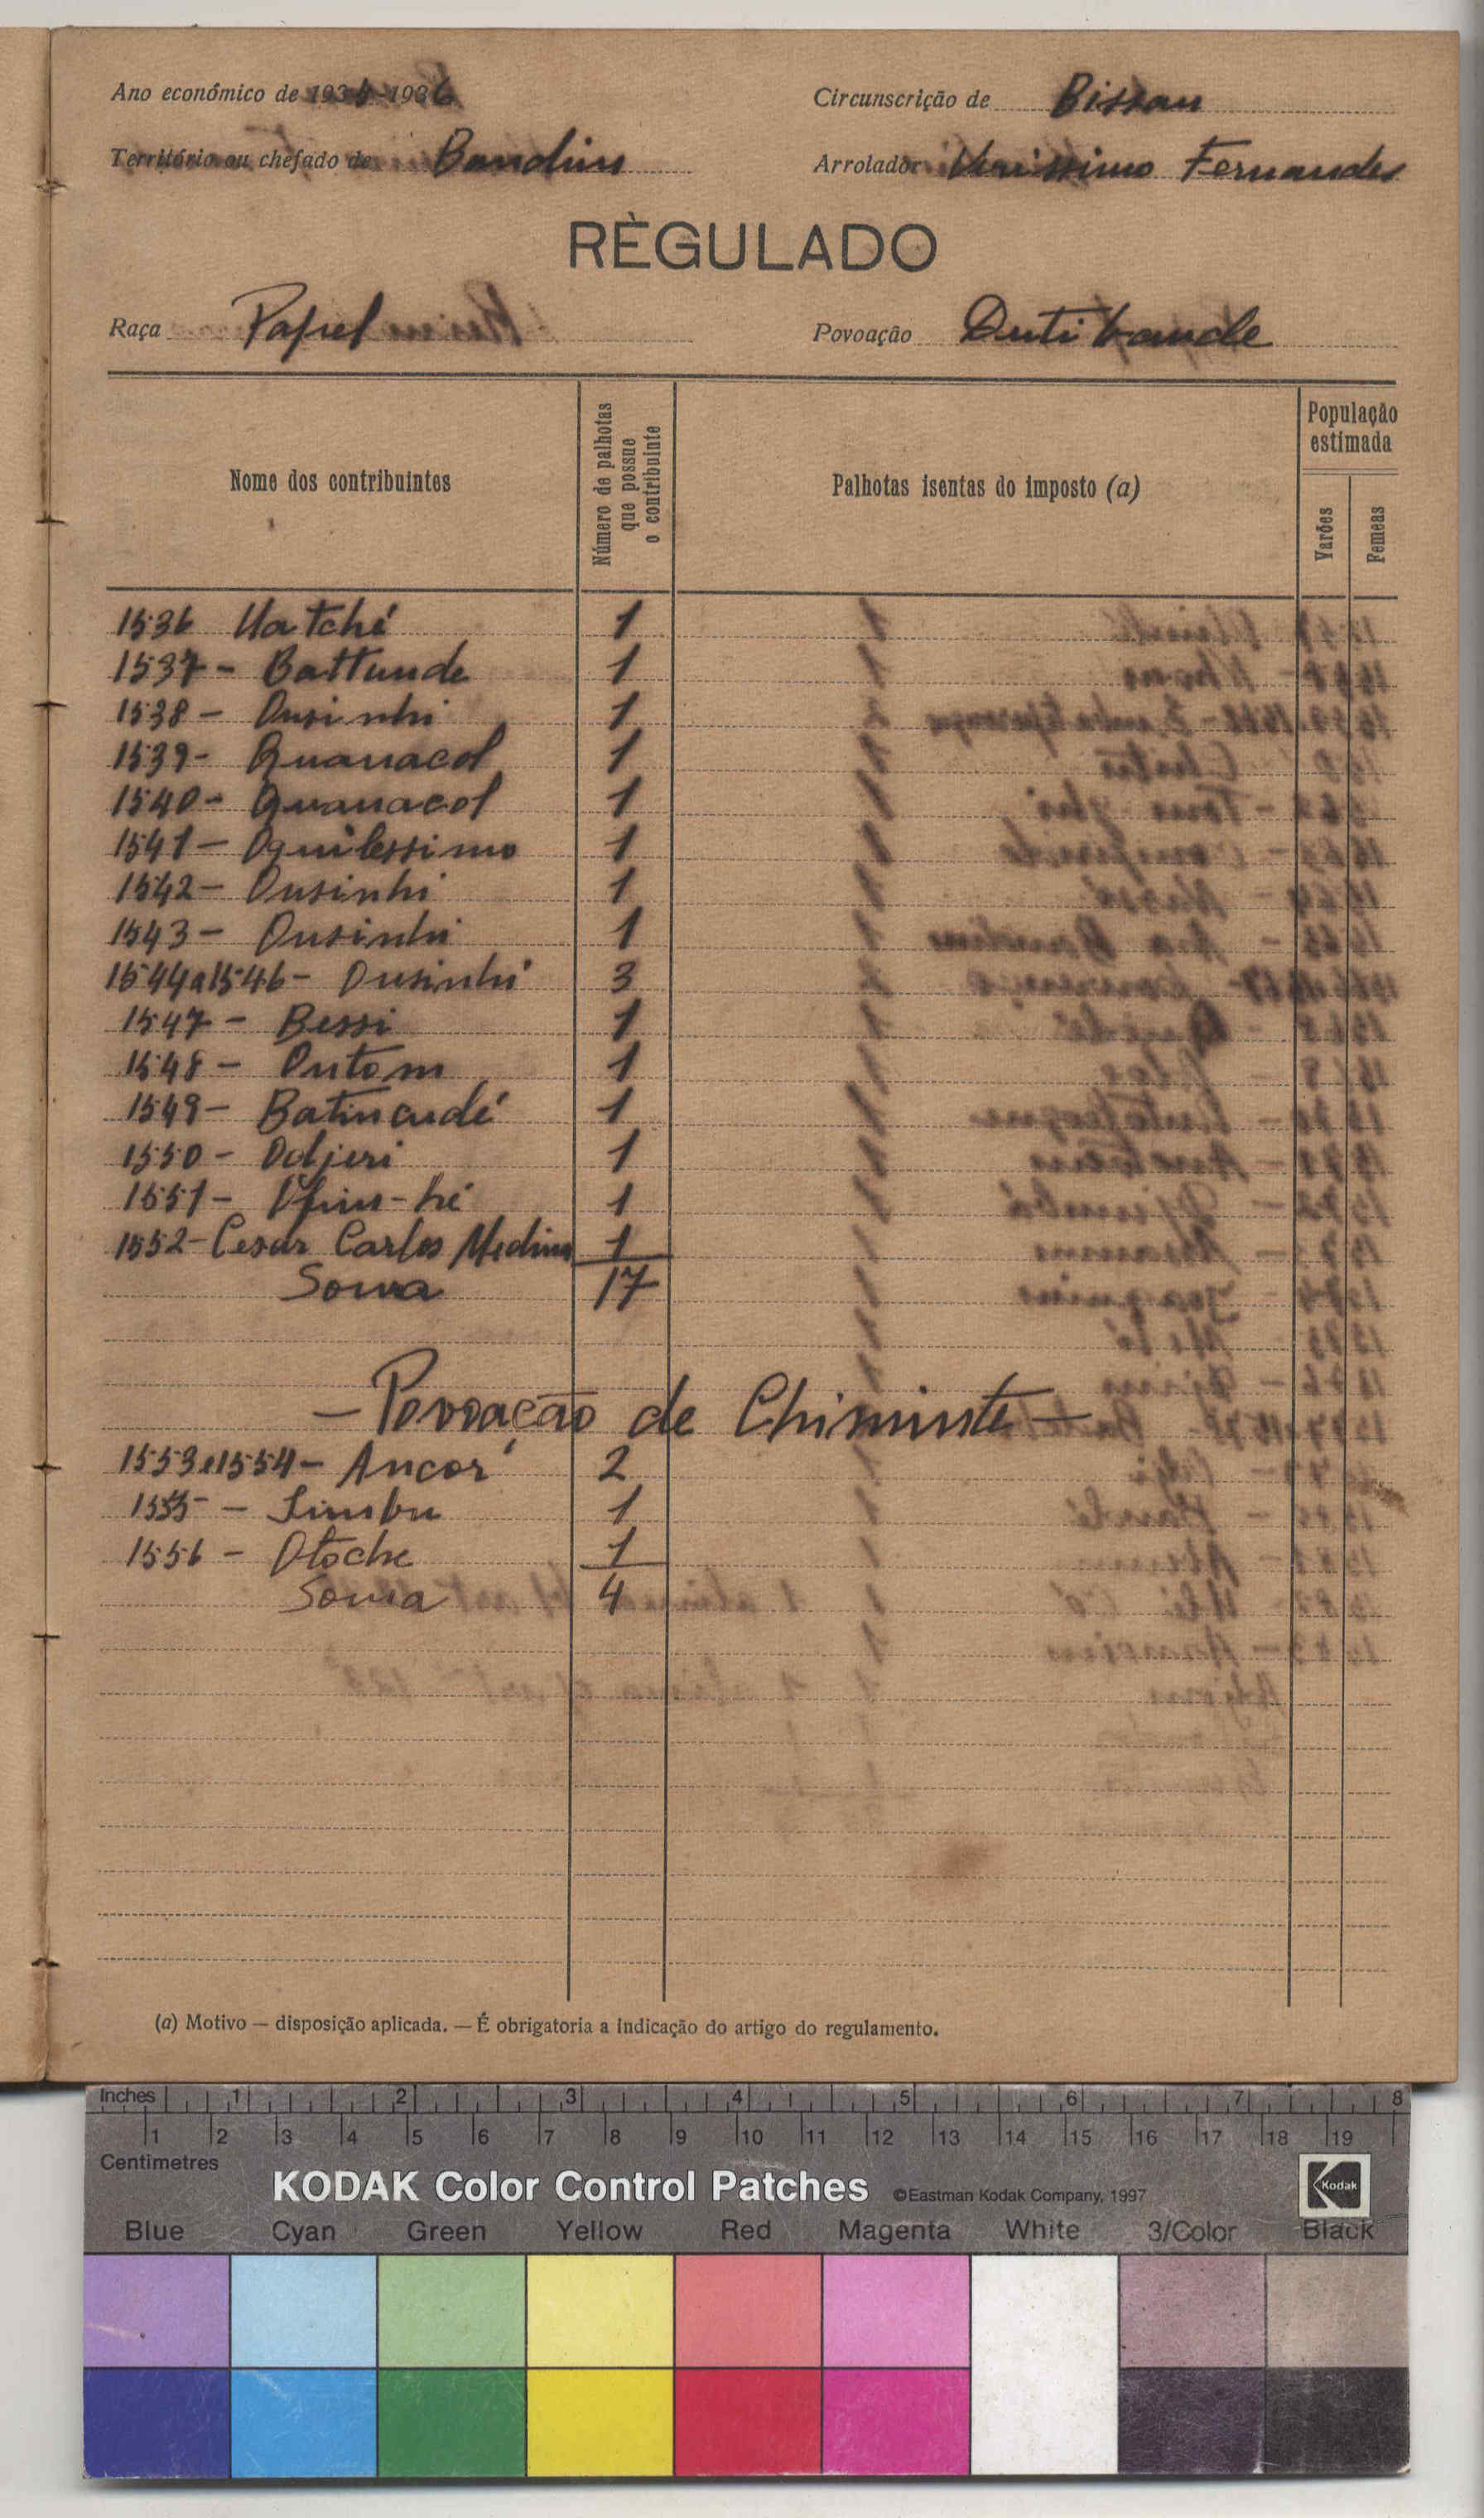 Ano económico de 1935-1936
Circunscrição de Bissau
Território ou chefado de Bandim
Arrolador Verissimo Fernandes
RÈGULADO
Raça Papel
Povoação Outi bande
Nome dos contribuintes
Número de palhotas que possue o contribuinte
Palhotas isentas do imposto (a)
População estimada
Varões
Femeas
1536 Uatché 1
1537 - Battunde 1
1538 - Ousinhi 1
1539 - Quanacol 1
1540 - Quanacol 1
1541 - Oquilessimo 1
1542 - Ousinhi 1
1543 - Ousinhi 1
1544 a 1546 - Ousinhi 3
1547 - Bessi 1
1548 - Outom 1
1549 - Batincudé 1
1550 - Odjuri 1
1551 - 1
1552 - Cesar Carlos Medina 1
Soma 17
- Povoação de Chiminte -
1553 e 1554 - Ancor 2
1555 - Simbu 1
1556 - Otoche 1
Soma 4
(a) Motivo — disposição aplicada. — É obrigatoria a indicação do artigo do regulamento.
Inches 1 2 3 4 5 6 7 8
1 2 3 4 5 6 7 8 9 10 11 12 13 14 15 16 17 18 19
Centimetres
KODAK Color Control Patches ©Eastman Kodak Company, 1997 Kodak
Blue Cyan Green Yellow Red Magenta White 3/Color Black